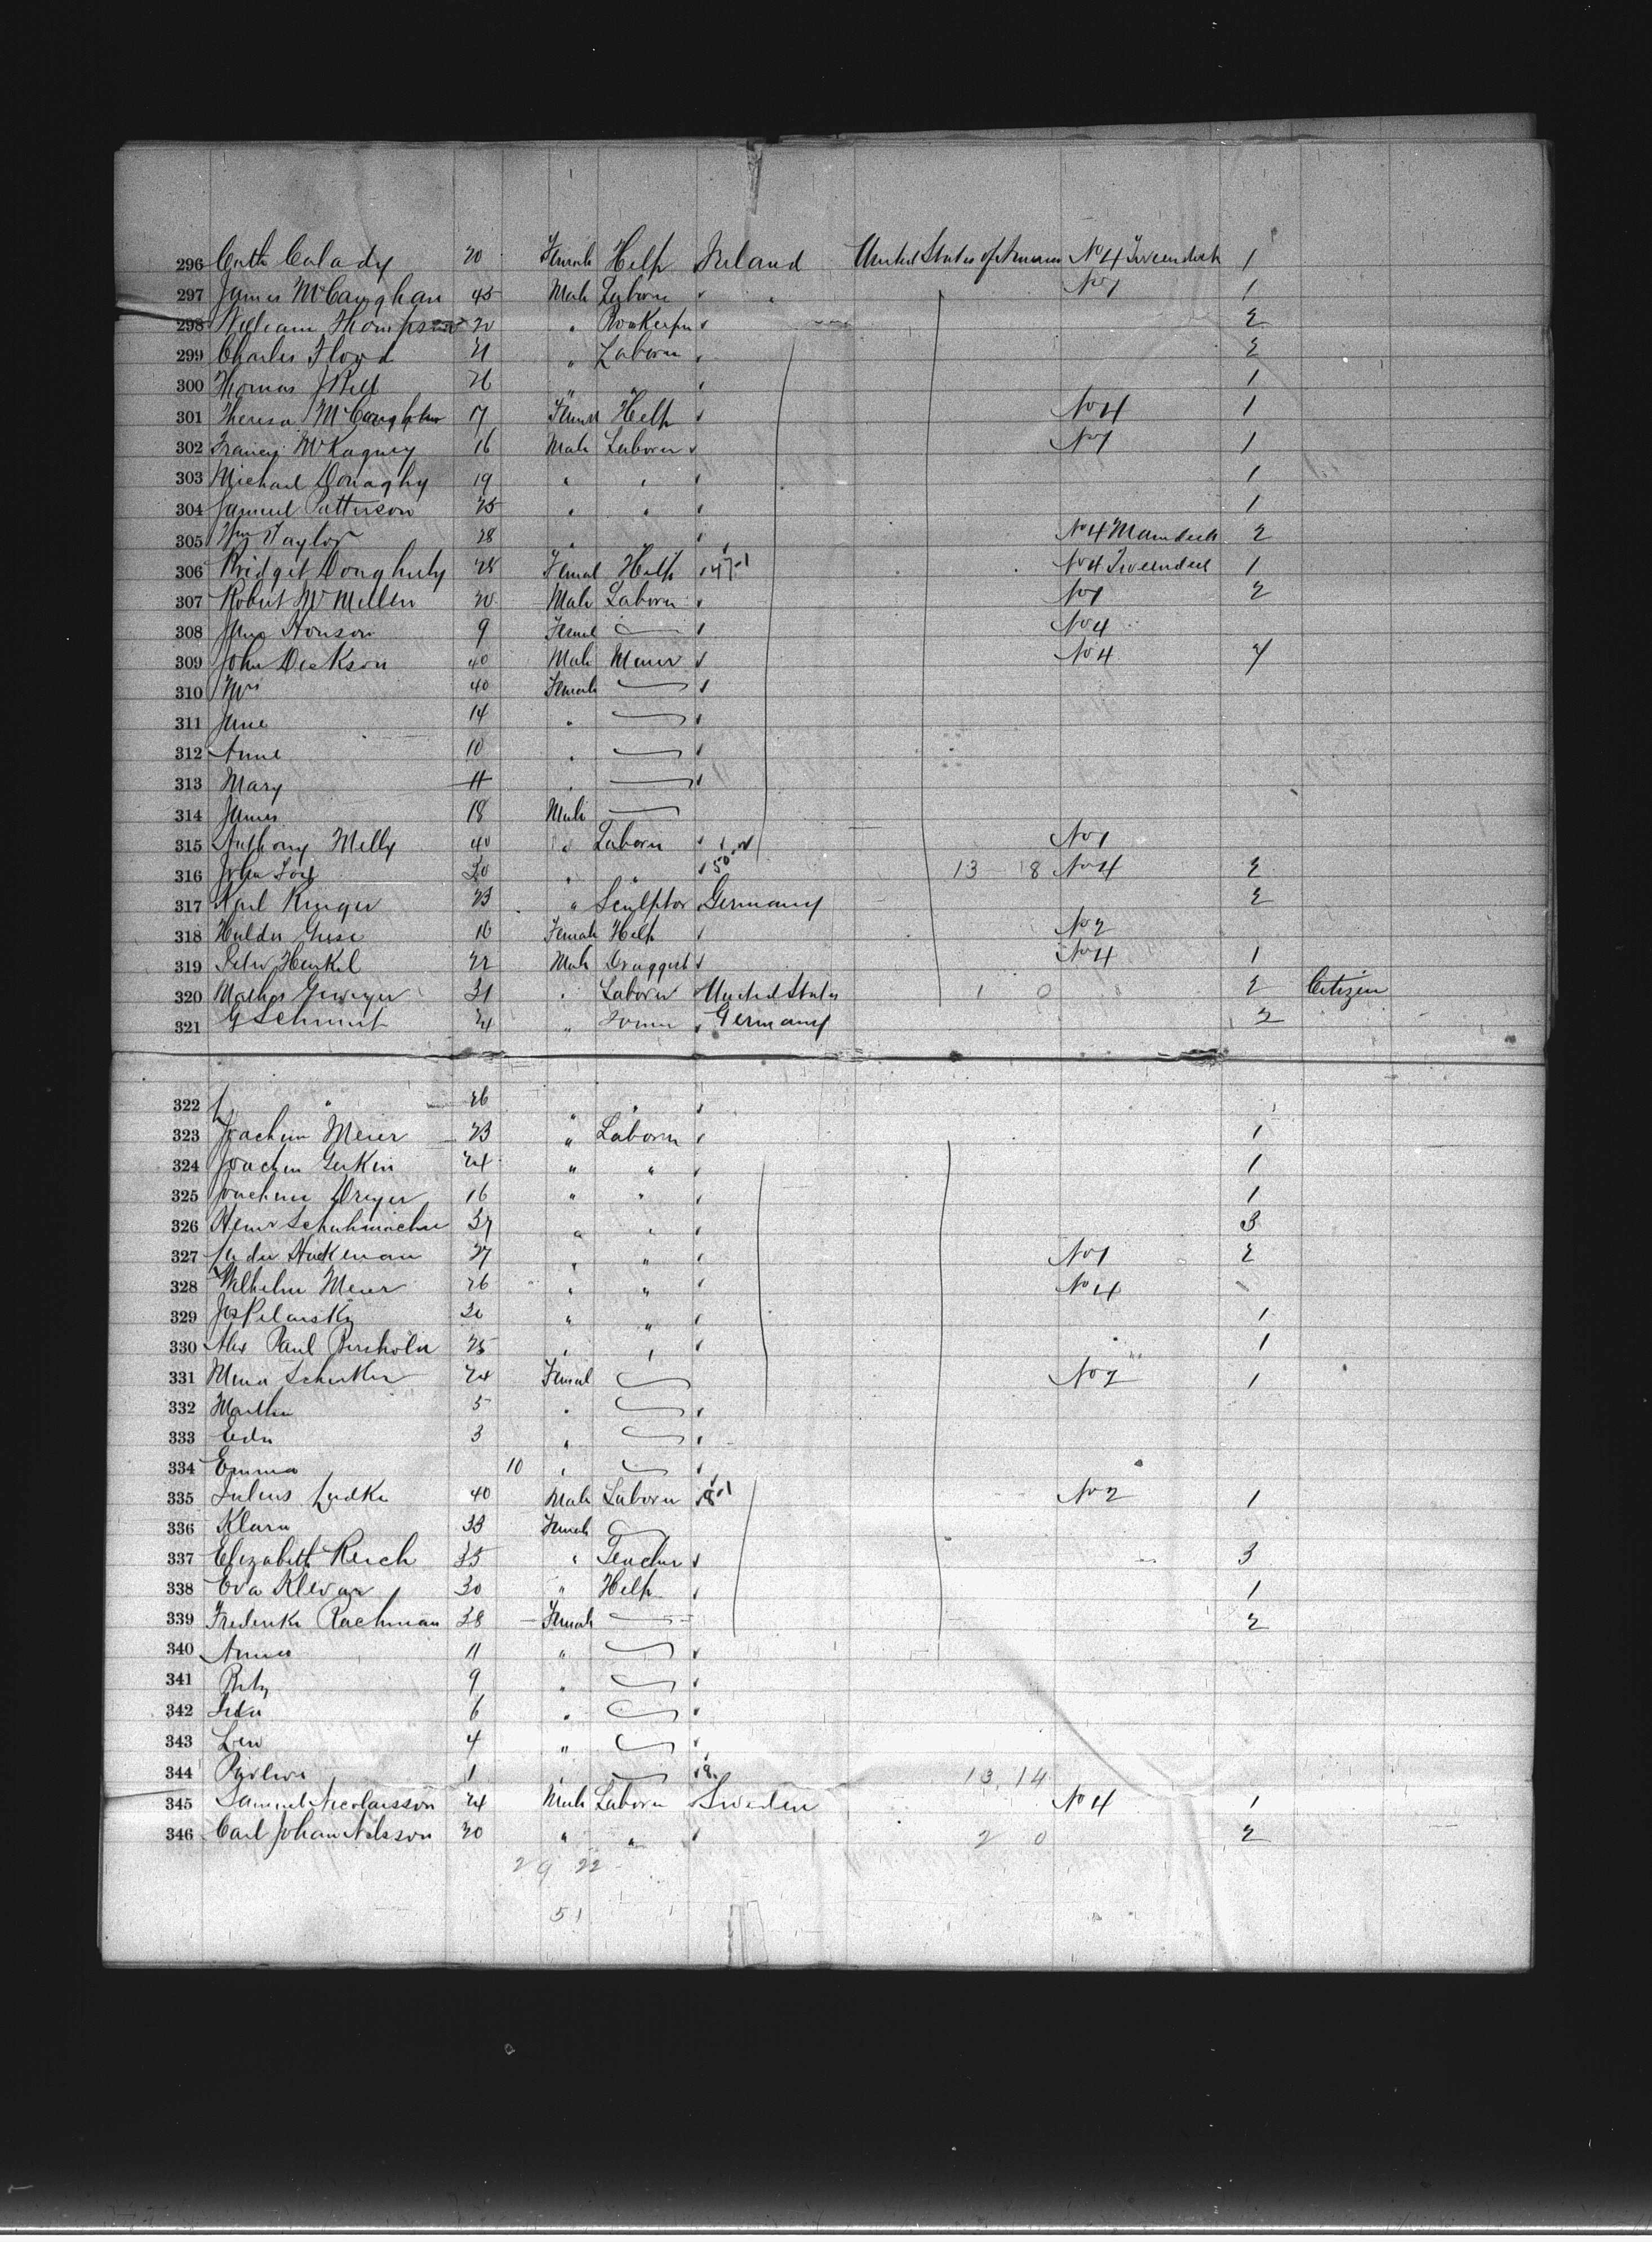 296 Cath Calady 20 Female Help Ireland United States of America No 4 Tweendeck 1
297 James McCaughan 45 Male Laborer " " No 1 1
298 William Thompson 20 " Bookeeper " 2
299 Charles Flood 21 " Laborer " 2
300 Thomas J Bell 26 " " " 1
301 Theresa McCaughan 17 Female Help " No 4 1
302 Francis McKagney 16 Male Laborer " No 1 1
303 Michael Donaghy 19 " " " 1
304 Samuel Patterson 25 " " " 1
305 Wm Taylor 28 " " " No 4 Maindeck 2
306 Bridget Dougherty 28 Female Help " No 4 Tweendeck 1
307 Robert McMillen 20 Male Laborer " No 1 2
308 Jane Houson 9 Female " No 4
309 John Dickson 40 Male Miner " No 4 7
310 Mrs 40 Female "
311 Jane 14 " "
312 Anne 10 " "
313 Mary 11 " "
314 James 18 Male
315 Anthony Melly 40 " Laborer " No 1
316 John Foy 20 " " " 50 13 18 No 4 2
317 Karl Kruger 23 " Sculptor Germany 2
318 Hulda Giese 16 Female Help " No 2
319 Peter Henkel 22 Male Druggist " No 4 1
320 31 " Laborer United States 1 0 2 Citizen
321 G Schmidt 24 " " Germany 2
322 " 26 " " "
323 Joachim Meier 23 " Laborer " 1
324 Joachim Gerken 24 " " " 1
325 Joachim Dreyer 16 " " " 1
326 Henr Schuhmacher 37 " " " 3
327 Hackman 27 " " " No 1 2
328 Wilhelm Meier 26 " " " No 4
329 Jos Pelansky " " " 1
330 Alex Paul 25 " " " 1
331 24 Female No 2 1
332 Martha 5 " "
333 3 " "
334 Emma 10 " "
335 Julius Ludke 40 Male Laborer " No 2 1
336 Klara 33 Female
337 Elizabeth Reich 35 " Teacher " 3
338 Eva 30 " Help " 1
339 Frederike Rachman 38 Female 2
340 Anna 11 " "
341 9 " "
342 Ida 6 " "
343 4 " "
344 1 " " 13 14
345 Samuel Nicolaisson 24 Male Laborer Sweden No 4 1
346 Carl Johan Nilsson 20 " " " 2 0 2
29 22
51